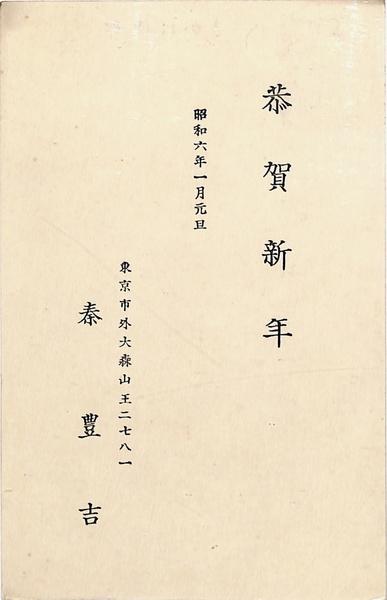 恭賀新年
昭和六年一月元旦
東京市外大森山王二七八一
秦豊吉